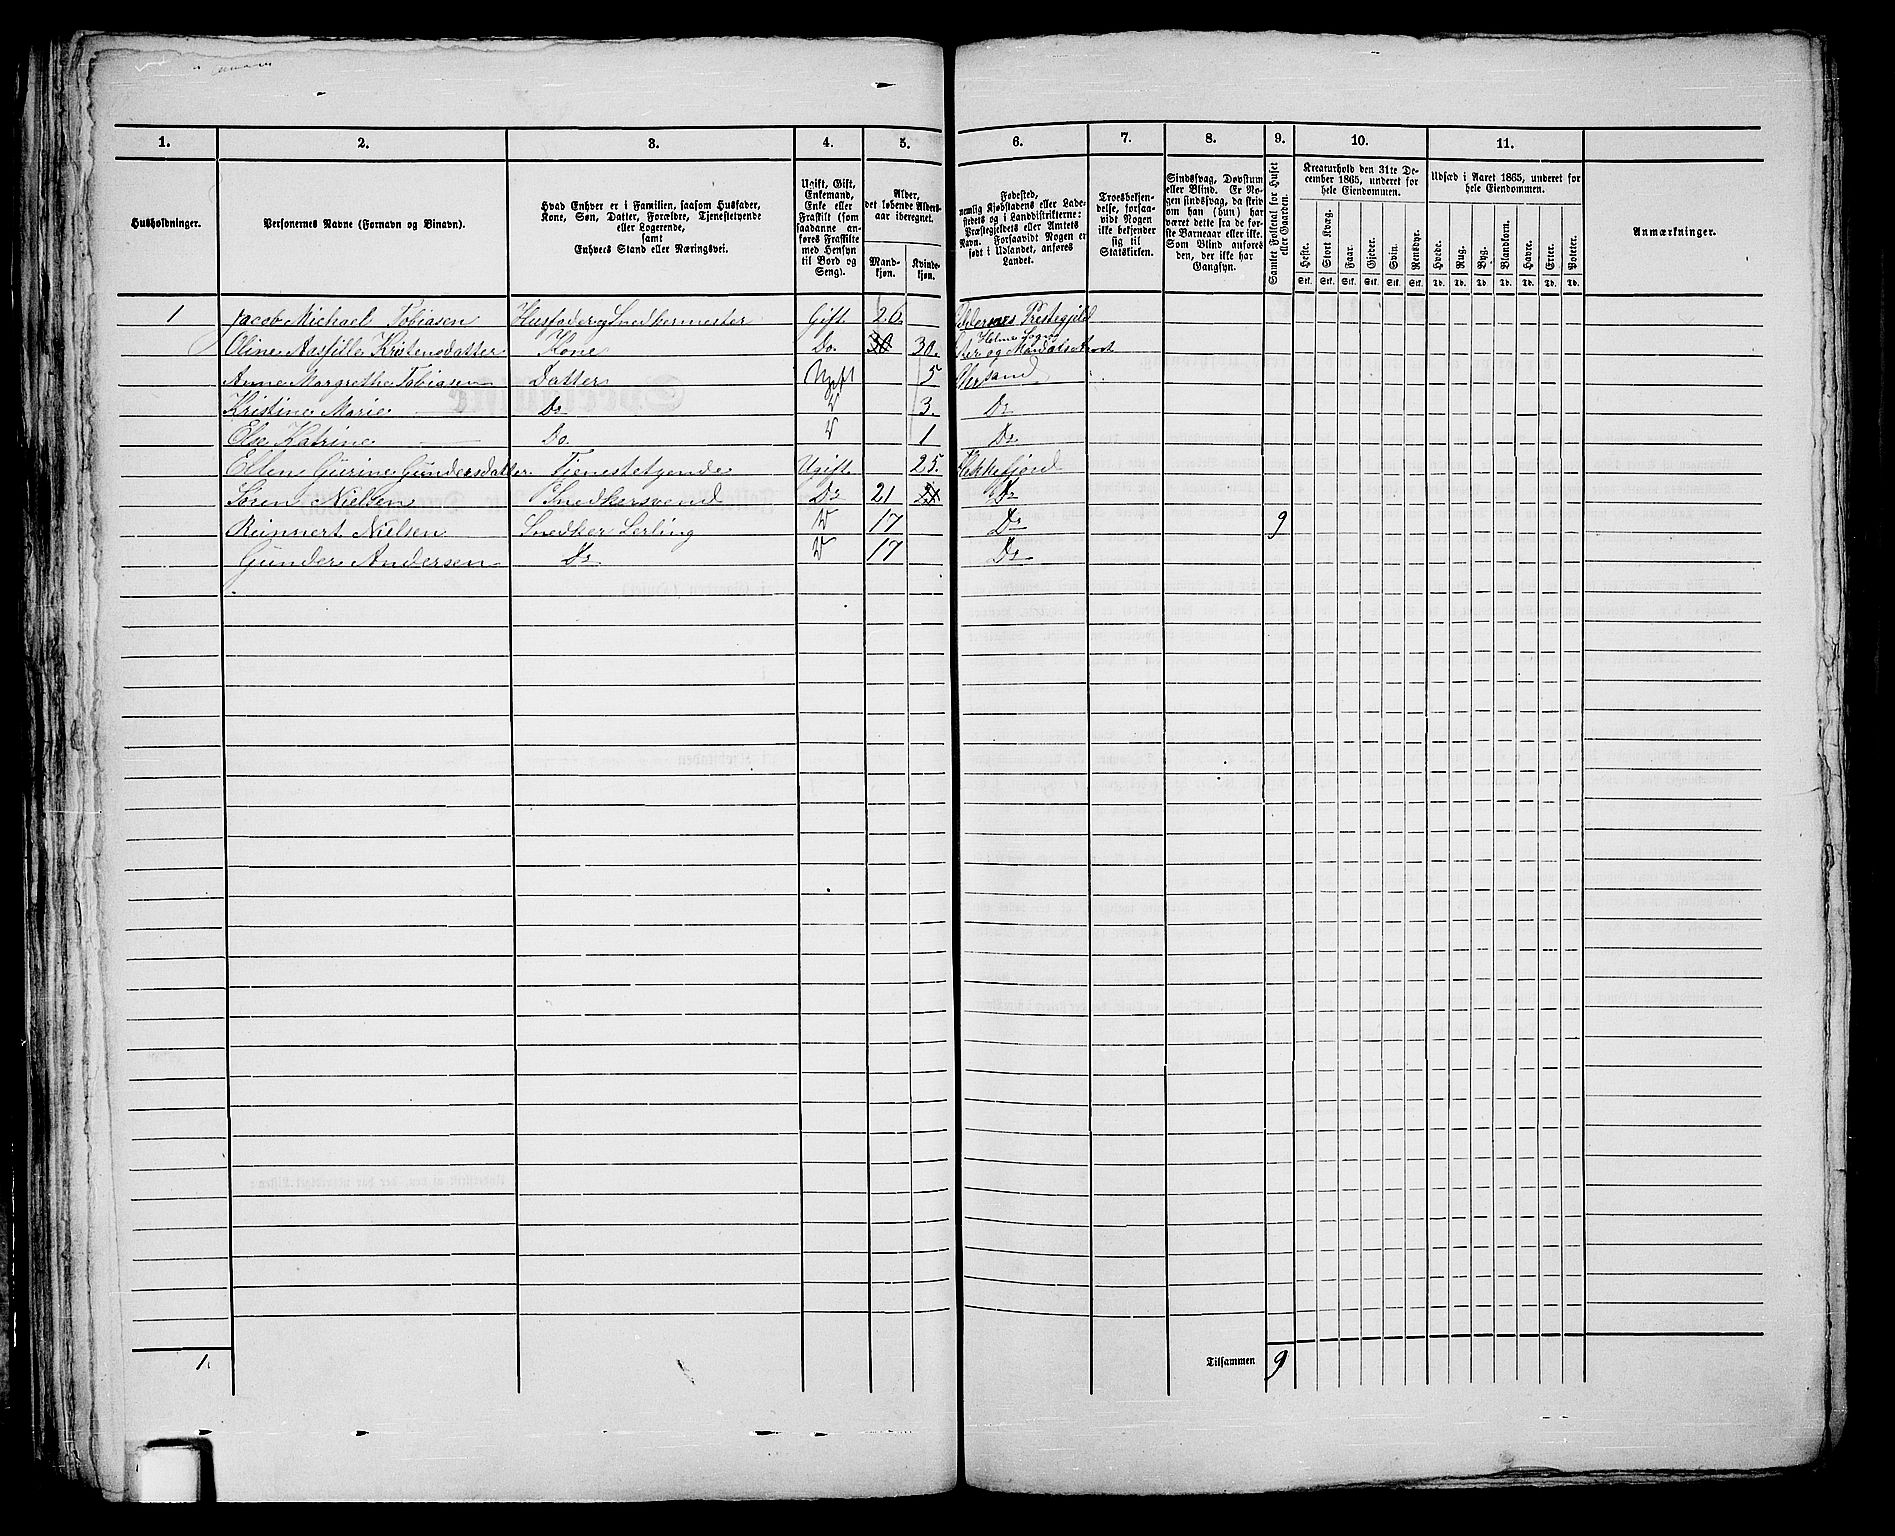 1. 2. 3. 4. 5. 6. 7. 8. 9. 10. 11.
Husholdninger.
Personernes Navne (Fornavn og Binavn).
Hvad Enhver er i Familien, saasom Husfader, Kone, Søn, Datter, Forældre, Tjenestetyende eller Logerende, samt Enhvers Stand eller Næringsvei.
Ugift, Gift, Enkemand, Enke eller Fraskilt (som saadanne anføres Fraskilte med Hensyn til Bord og Seng).
Alder, det løbende Aldersaar iberegnet.
Mandkjøn. Kvindekjøn.
Fødested, nemlig Kjøbstadens eller Ladestedets og i Landdistrikterne: Præstegjeldets eller Amtets Navn. Forsaavidt Nogen er født i Udlandet, anføres Landet.
Troesbekjendelse, forsaavidt Nogen ikke bekjender sig til Statskirken.
Sindssvag, Døvstum eller Blind. Er Nogen sindssvag, da skriv om han (hun) har været dette fra de første Barneaar eller ikke. Som Blind anføres den, der ikke har Gangsyn.
Samlet Folketal for Huset eller Gaarden.
Kreaturhold den 31te December 1865, underet for hele Eiendommen.
Heste. Stort Kvæg. Faar. Gjeder. Svin. Rensdyr.
Stk. Stk. Stk. Stk. Stk. Stk.
Udsæd i Aaret 1865, underet for hele Eiendommen.
Hvede. Rug. Byg. Blandkorn. Havre. Erter. Poteter.
Td. Td. Td. Td. Td. Td. Td.
Anmærkninger.
1 Jacob Michael Tobiasen Husfader og Snedkermester Gift 26 Prestegjeld
Oline Kristensdatter Kone Do. 30 30. Holme Sogn
Anne Margrethe Tobiasen Datter Ugift 5
Kristine Marie Do 3. Do
Else Katrine Do. 1 Do
Ellen Gurine Gundersdatter Tienestetyende Ugift 25. Flekkefjord
Sören Nielsen Snedkersvend Do 21 21 Do
Reinnert Nielsen Snedker Lerling 17 Do 9
Gunder Andersen Do 17 Do
1. Tilsammen 9